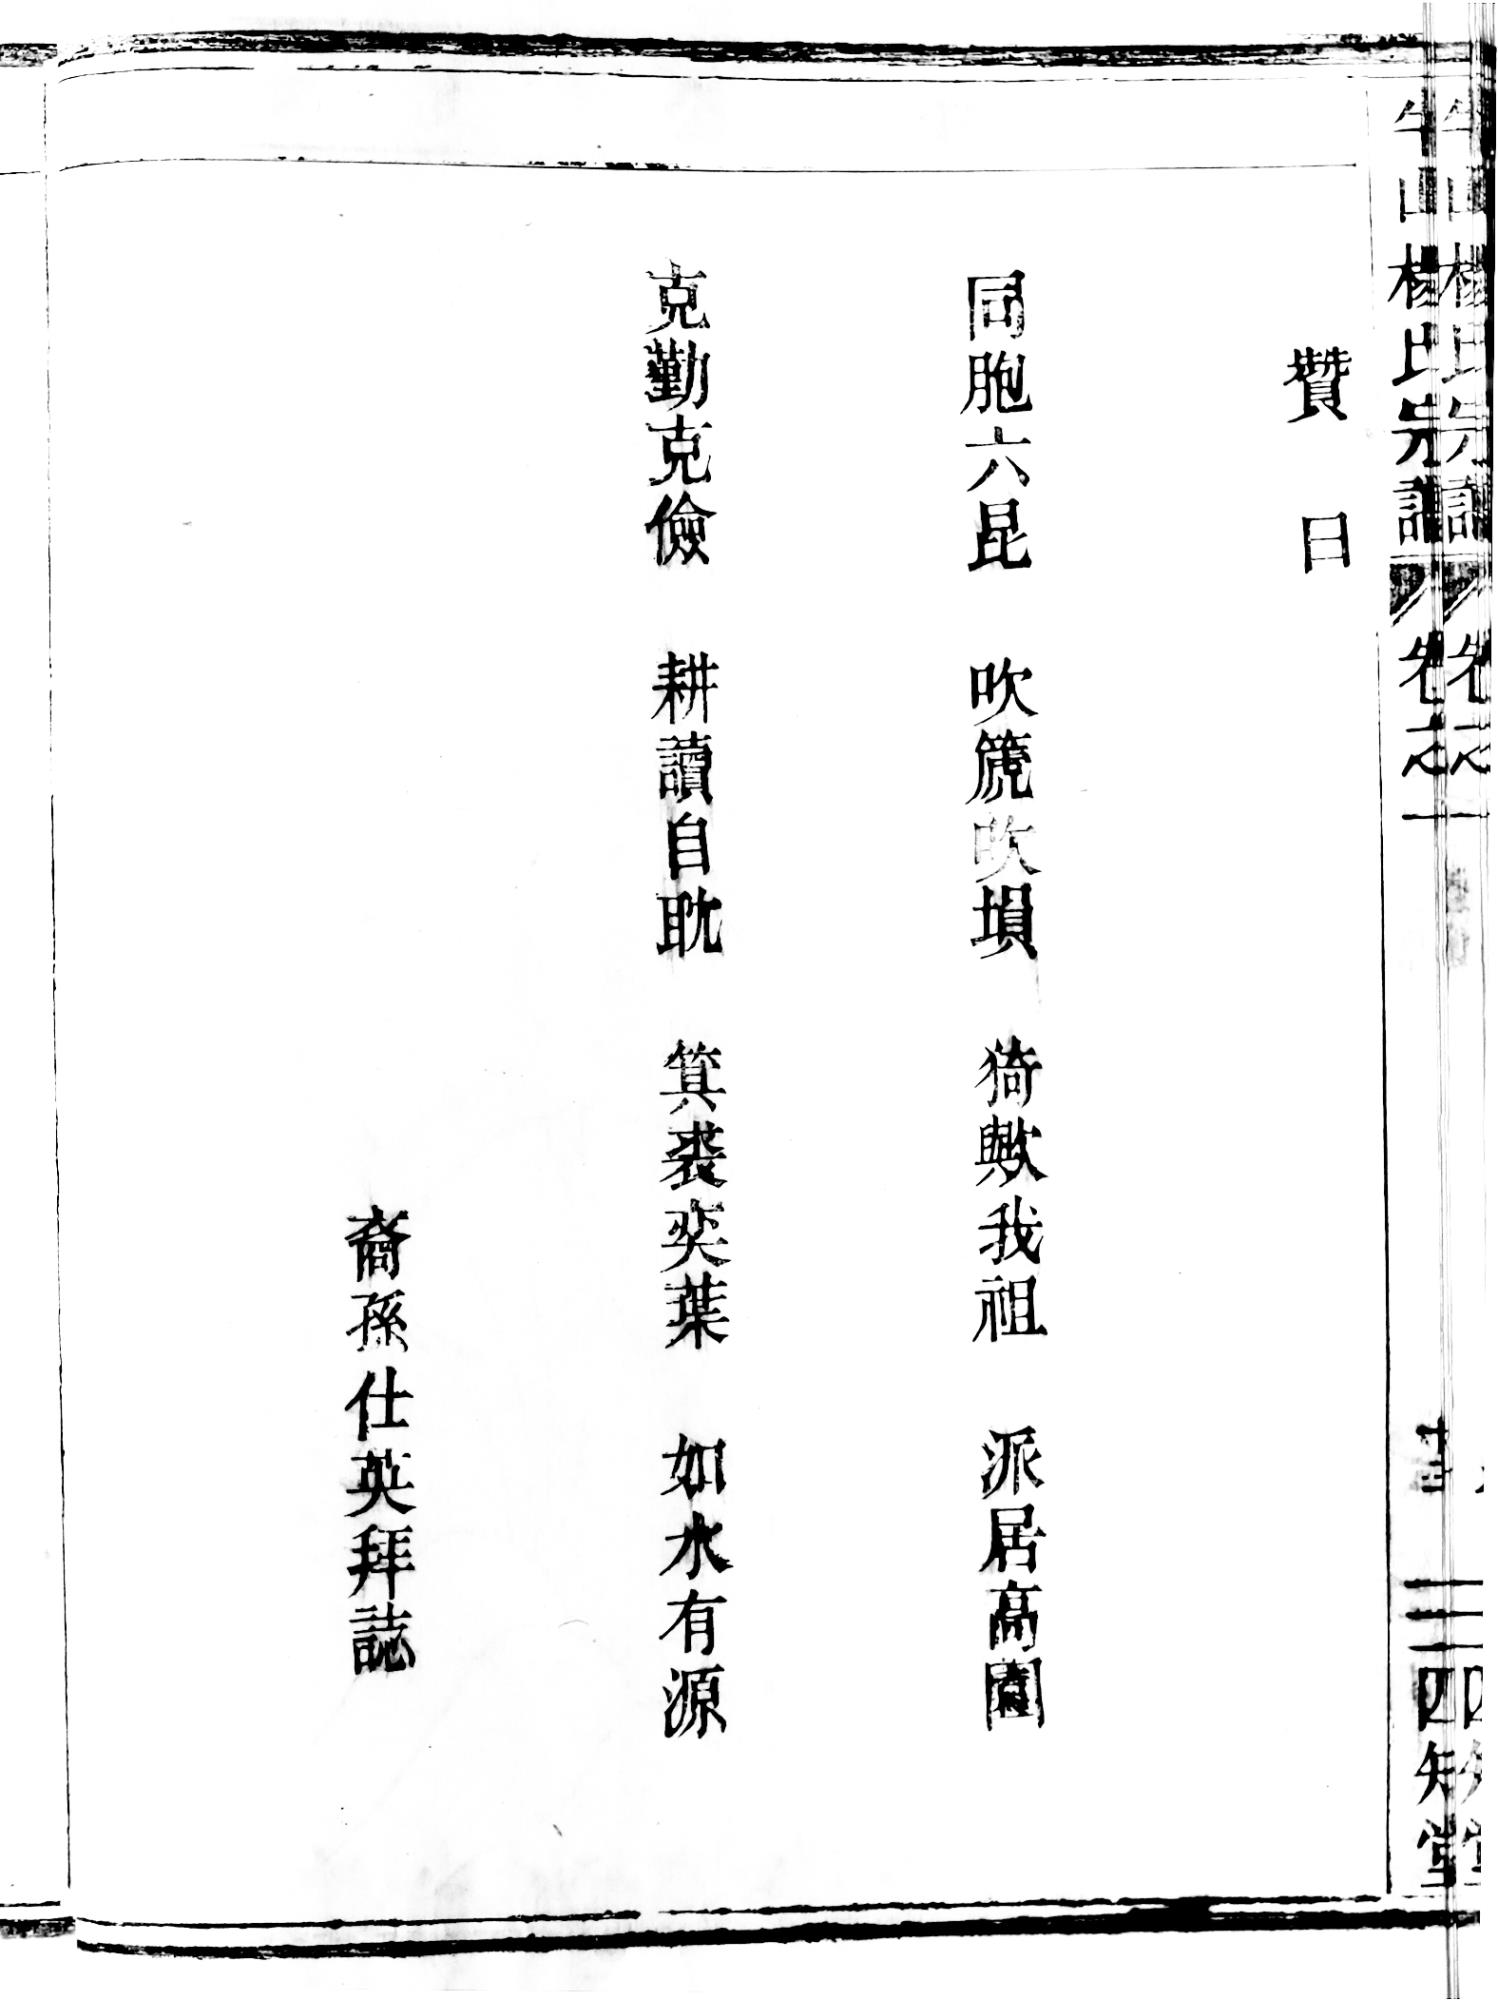 牛山楊氏宗譜 卷之一 四知堂
贊曰
同胞六昆 吹篪吹塤 猗歟我祖 派居高園
克勤克儉 耕讀自耽 箕裘奕葉 如水有源
裔孫仕英拜誌